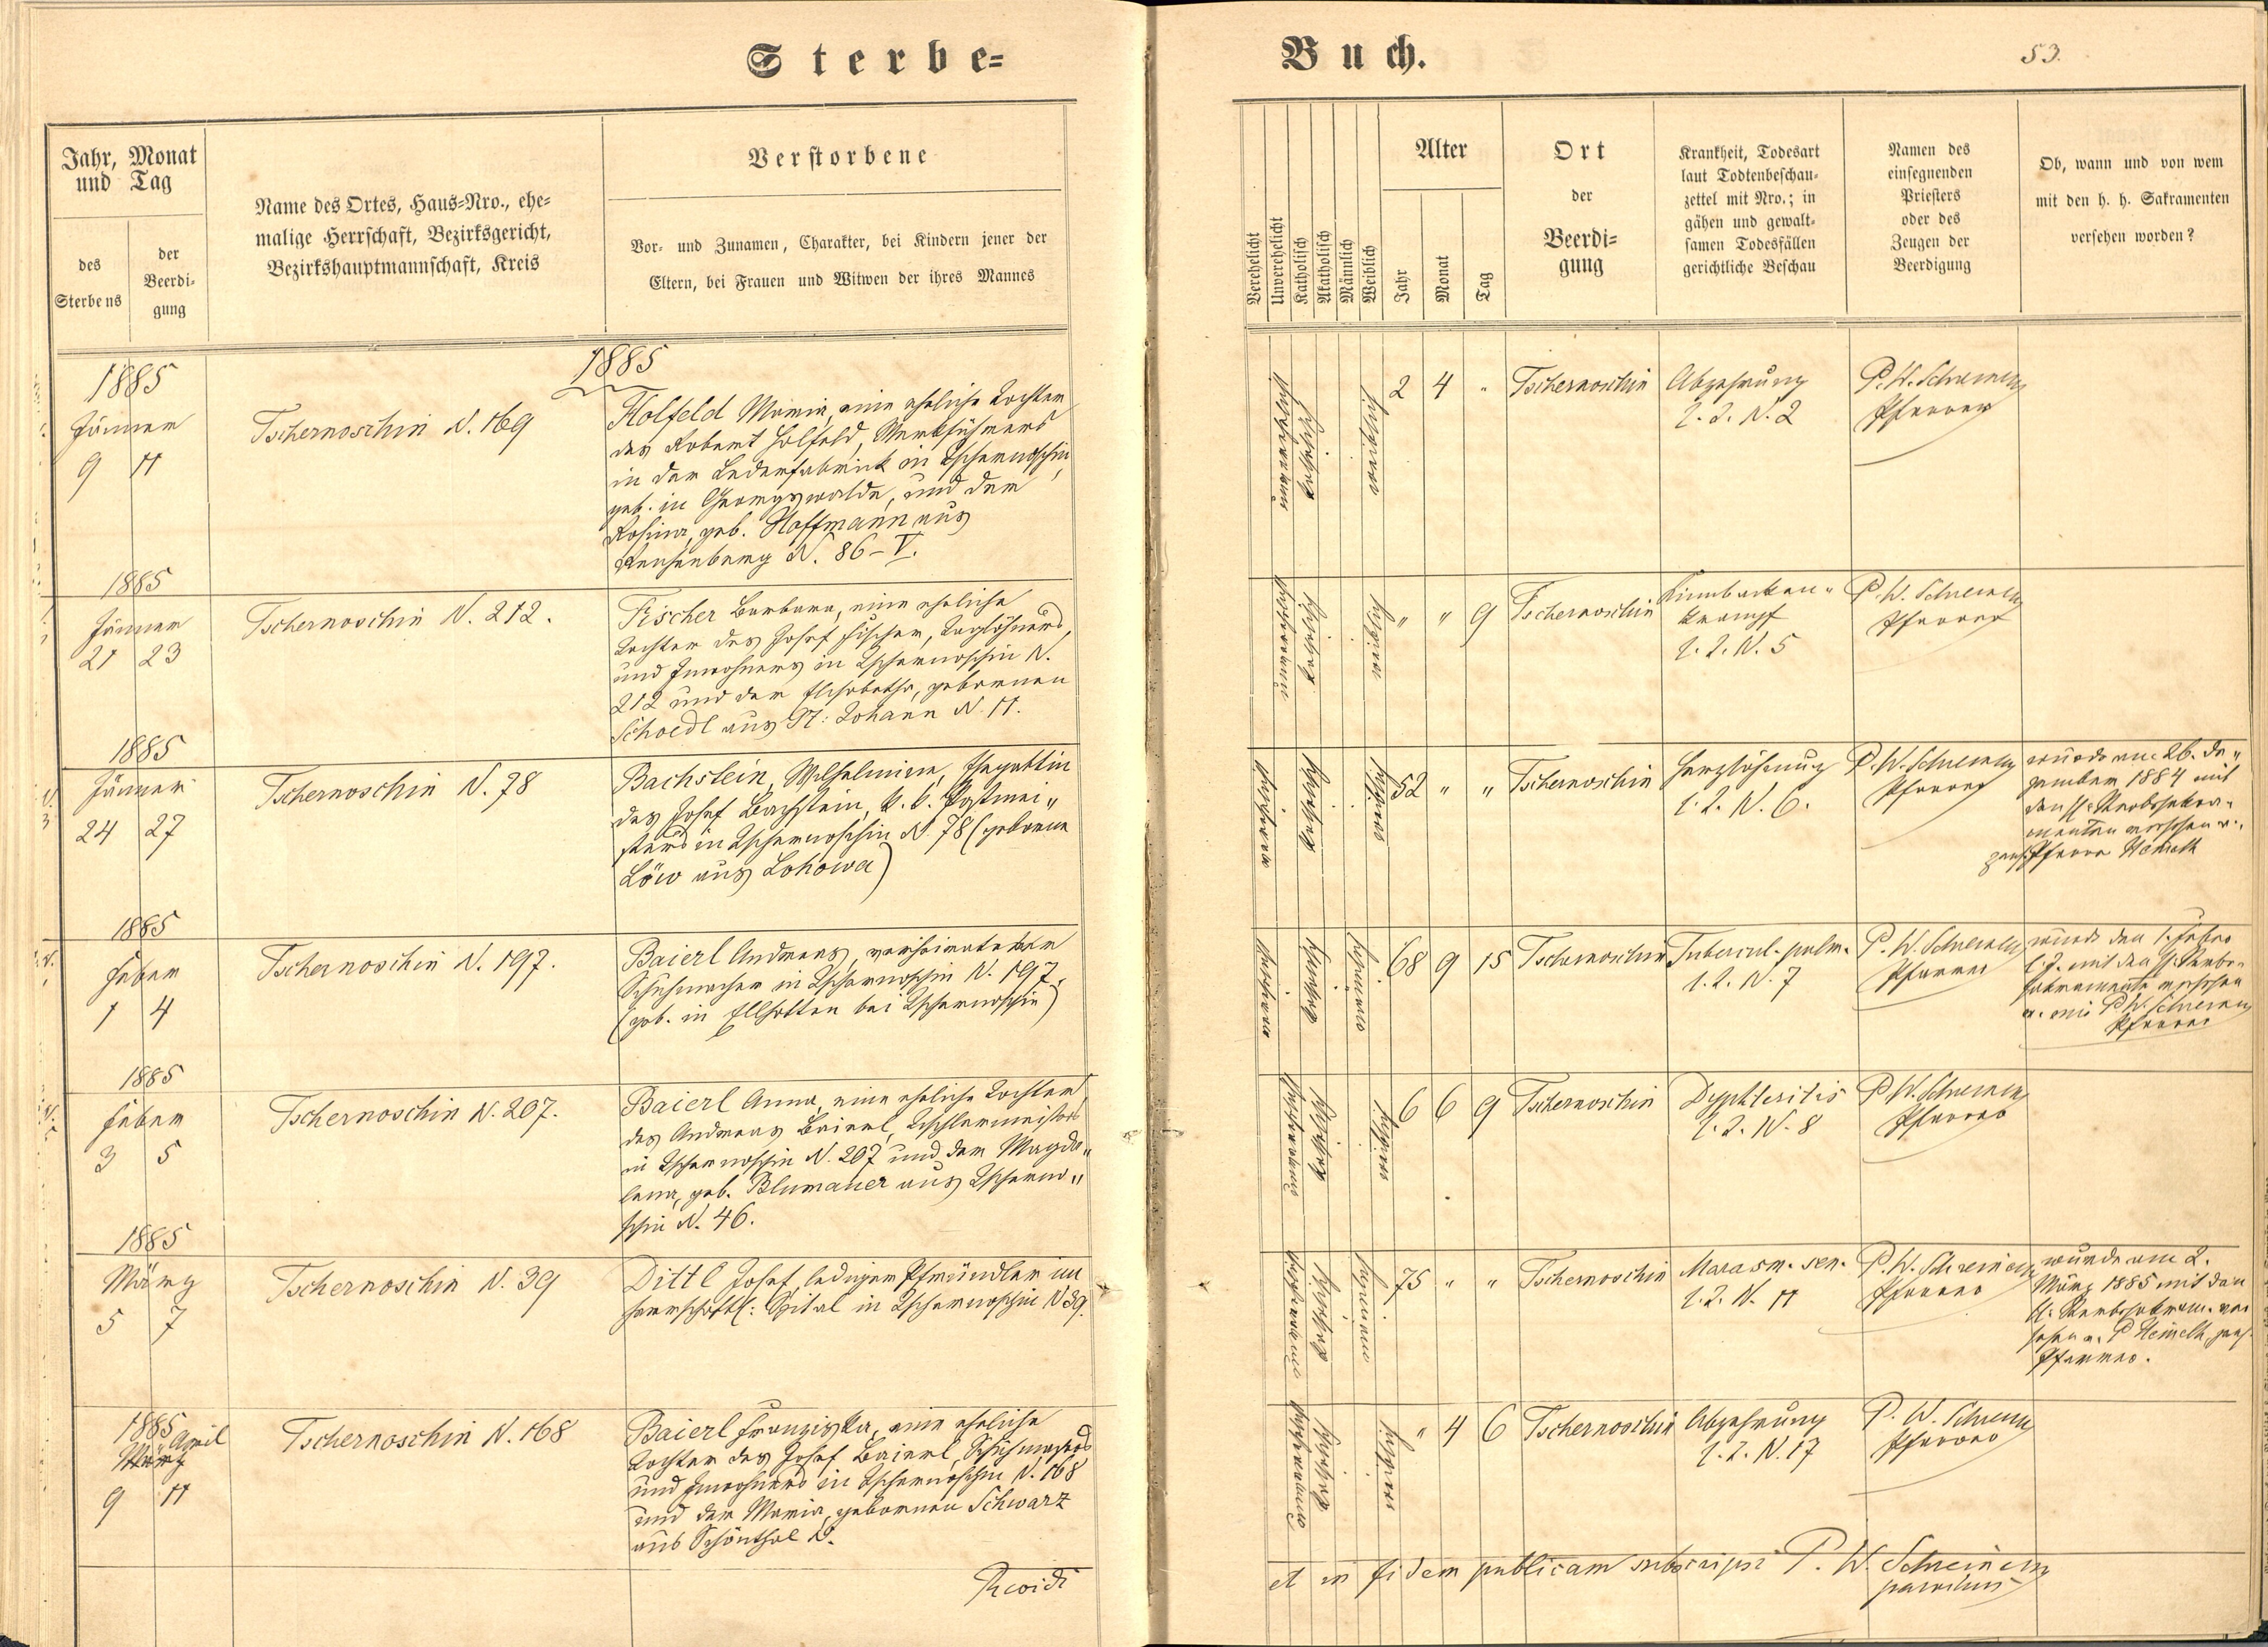 Sterbe=
Buch.
53.
Jahr, Monat
und Tag
des
Sterbens
der
Beerdi-
gung
Name des Ortes, Haus=Nro., ehe=
malige Herrschaft, Bezirksgericht,
Bezirkshauptmannschaft, Kreis
Verstorbene
Vor- und Zunamen, Charakter, bei Kindern jener der
Eltern, bei Frauen und Witwen der ihres Mannes
Verehelicht
Unverehelicht
Katholisch
Akatholisch
Männlich
Weiblich
Alter
Jahr
Monat
Tag
Ort
der
Beerdi=
gung
Krankheit, Todesart
laut Todtenbeschau-
zettel mit Nro.; in
gähen und gewalt-
samen Todesfällen
gerichtliche Beschau
Namen des
einsegnenden
Priesters
oder des
Zeugen der
Beerdigung
Ob, wann und von wem
mit den h. h. Sakramenten
versehen worden?
1885
1885
Jänner
9 11
Tschernoschin N. 169
Holfeld Maria, eine eheliche Tochter
des Robert Holfeld, Werkführers
in der Lederfabrick in Tschernoschin,
geb. in Georgswalde, und der
Rosina, geb. Hoffmann aus
Reichenberg N. 86-V.
unverehelicht
katholisch
weiblich
2 4 "
Tschernoschin
Abzehrung
l. Z. N. 2
P. W. Schreiner
Pfarrer
1885
Jänner
21 23
Tschernoschin N. 212.
Fischer Barbara, eine eheliche
Tochter des Josef Fischer, Taglöhners,
und Inwohners in Tschernoschin N.
212 und der Elisabetha, gebornen
Schoedl aus St: Johann N. 11.
katholisch
weiblich
" " 9
Tschernoschin
Kinnbacken-
krampf
l. Z. N. 5
P. W. Schreiner
Pfarrer
1885
Jänner
24 27
Tschernoschin N. 78
Bachstein, Wilhelmine, Ehegattin
des Josef Bachstein, k. k. Postmei"
sters in Tschernoschin N. 78 (geborne
Löw aus Lohowa)
katholisch
52 " "
Tschernoschin
Herzlähmung
l. Z. N. 6.
P. W. Schreiner
Pfarrer
wurde am 26. De"
zember 1884 mit
den hl. Sterbsakra-
menten versehen v.
Pfarrer
1885
Feber
1 4
Tschernoschin N. 197.
Baierl Andreas, verheirateter
Schuhmacher in Tschernoschin N. 197,
(geb. in Ellhotten bei Tschernoschin)
68 9 15
Tschernoschin
Tubercul. pulm.
l. Z. N. 7
P. W. Schreiner
Pfarrer
wurde den 1. Feber
l. J. mit den hl. Sterbe-
sakramente versehen
v. mir P. W. Schreiner
Pfarrer
1885
Feber
3 5
Tschernoschin N. 207.
Baierl Anna, eine eheliche Tochter
des Andreas Baierl, Tischlermeisters
in Tschernoschin N. 207 und der Magda"
lena, geb. Blumauer aus Tscherno"
schin N. 46.
6 6 9
Tschernoschin
Dyphteritis
l. Z. N. 8
P. W. Schreiner
Pfarrer
1885
März
5 7
Tschernoschin N. 39
Dittl Josef, lediger Pfründler im
herrschaftl: Spital in Tschernoschin N 39.
75 " "
Tschernoschin
Marasm. sen.
l. Z. N. 11
P. W. Schreiner
Pfarrer
wurde am 2.
März 1885 mit den
hl. Sterbsakram. ver
sehen v. P.
Pfarrer.
1885
April
März
9 11
Tschernoschin N. 168
Baierl Franziska, eine eheliche
Tochter des Josef Baierl, Schuhmachers
und Inwohners in Tschernoschin N. 168
und der Maria, gebornen Schwarz
aus Schönthal N.
" 4 6
Tschernoschin
Abzehrung
l. Z. N. 17
P. W. Schreiner
Pfarrer
et in fidem publicam subscripsi P. W. Schreiner
parochus